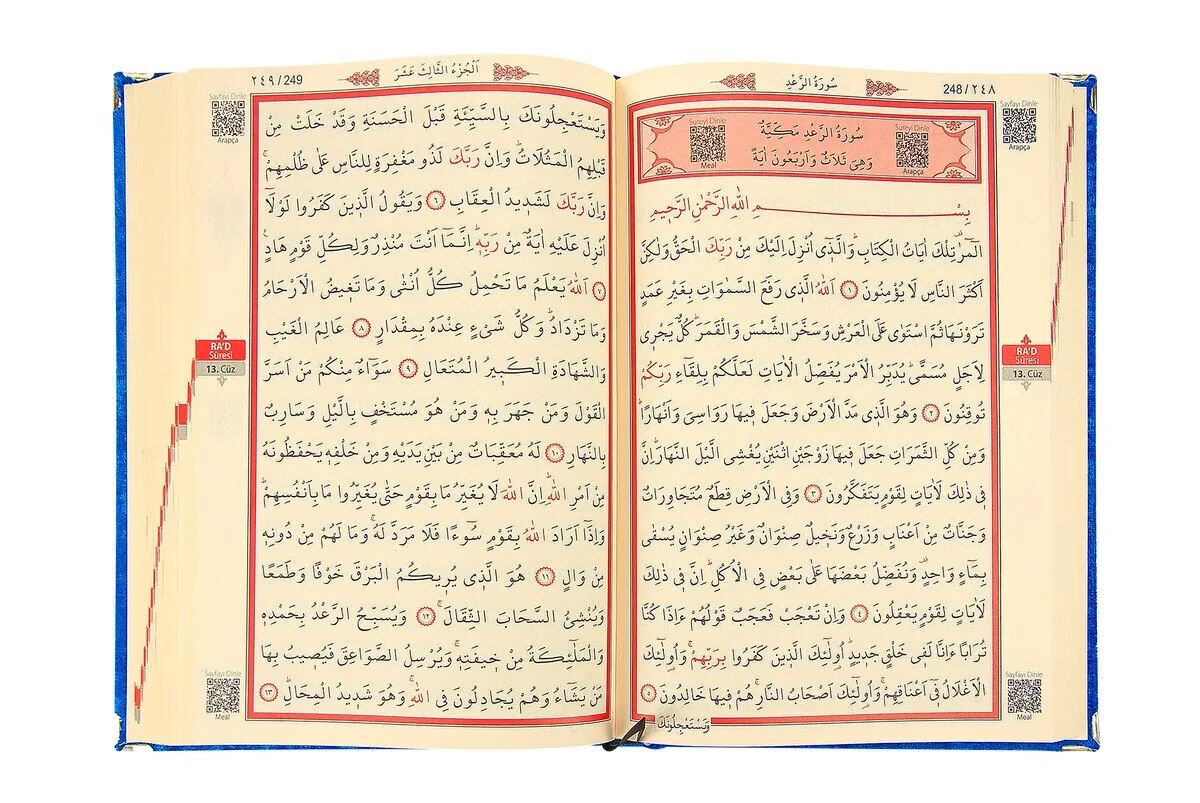 248 / ٢٤٨
سُورَةُ الرَّعْدِ
Sayfayı Dinle
Arapça
Sureyi Dinle
Meal
سُورَةُ الرَّعْدِ مَكِّيَّةٌ
وَهِيَ ثَلَاثٌ وَاَرْبَعُونَ اٰيَةً
Sureyi Dinle
Arapça
بِسْــــمِ اللّٰهِ الرَّحْمٰنِ الرَّحٖيمِ
الٓمٓرٰ تِلْكَ اٰيَاتُ الْكِتَابِؕ وَالَّذٖٓي اُنْزِلَ اِلَيْكَ مِنْ رَبِّكَ الْحَقُّ وَلٰكِنَّ
اَكْثَرَ النَّاسِ لَا يُؤْمِنُونَ ١ اَللّٰهُ الَّذٖي رَفَعَ السَّمٰوَاتِ بِغَيْرِ عَمَدٍ
تَرَوْنَهَا ثُمَّ اسْتَوٰى عَلَى الْعَرْشِ وَسَخَّرَ الشَّمْسَ وَالْقَمَرَؕ كُلٌّ يَجْرٖي
لِاَجَلٍ مُسَمًّىؕ يُدَبِّرُ الْاَمْرَ يُفَصِّلُ الْاٰيَاتِ لَعَلَّكُمْ بِلِقَٓاءِ رَبِّكُمْ
تُوقِنُونَ ٢ وَهُوَ الَّذٖي مَدَّ الْاَرْضَ وَجَعَلَ فٖيهَا رَوَاسِيَ وَاَنْهَارًاؕ
وَمِنْ كُلِّ الثَّمَرَاتِ جَعَلَ فٖيهَا زَوْجَيْنِ اثْنَيْنِ يُغْشِي الَّيْلَ النَّهَارَؕ اِنَّ
فٖي ذٰلِكَ لَاٰيَاتٍ لِقَوْمٍ يَتَفَكَّرُونَ ٣ وَفِي الْاَرْضِ قِطَعٌ مُتَجَاوِرَاتٌ
وَجَنَّاتٌ مِنْ اَعْنَابٍ وَزَرْعٌ وَنَخٖيلٌ صِنْوَانٌ وَغَيْرُ صِنْوَانٍ يُسْقٰى
بِمَٓاءٍ وَاحِدٍ وَنُفَضِّلُ بَعْضَهَا عَلٰى بَعْضٍ فِي الْاُكُلِؕ اِنَّ فٖي ذٰلِكَ
لَاٰيَاتٍ لِقَوْمٍ يَعْقِلُونَ ٤ وَاِنْ تَعْجَبْ فَعَجَبٌ قَوْلُهُمْ ءَاِذَا كُنَّا
تُرَابًا ءَاِنَّا لَفٖي خَلْقٍ جَدٖيدٍؕ اُو۬لٰٓئِكَ الَّذٖينَ كَفَرُوا بِرَبِّهِمْۚ وَاُو۬لٰٓئِكَ
الْاَغْلَالُ فٖٓي اَعْنَاقِهِمْۚ وَاُو۬لٰٓئِكَ اَصْحَابُ النَّارِۚ هُمْ فٖيهَا خَالِدُونَ ٥
وَيَسْتَعْجِلُونَكَ
RA'D
Sûresi
13. Cüz
Sayfayı Dinle
Meal
٢٤٩ / 249
اَلْجُزْءُ الثَّالِثَ عَشَرَ
Sayfayı Dinle
Arapça
وَيَسْتَعْجِلُونَكَ بِالسَّيِّئَةِ قَبْلَ الْحَسَنَةِ وَقَدْ خَلَتْ مِنْ
قَبْلِهِمُ الْمَثُلَاتُؕ وَاِنَّ رَبَّكَ لَذُو مَغْفِرَةٍ لِلنَّاسِ عَلٰى ظُلْمِهِمْۚ
وَاِنَّ رَبَّكَ لَشَدٖيدُ الْعِقَابِ ٦ وَيَقُولُ الَّذٖينَ كَفَرُوا لَوْلَٓا
اُنْزِلَ عَلَيْهِ اٰيَةٌ مِنْ رَبِّهٖؕ اِنَّمَٓا اَنْتَ مُنْذِرٌ وَلِكُلِّ قَوْمٍ هَادٍۚ
٧ اَللّٰهُ يَعْلَمُ مَا تَحْمِلُ كُلُّ اُنْثٰى وَمَا تَغٖيضُ الْاَرْحَامُ
وَمَا تَزْدَادُؕ وَكُلُّ شَيْءٍ عِنْدَهُ بِمِقْدَارٍ ٨ عَالِمُ الْغَيْبِ
وَالشَّهَادَةِ الْكَبٖيرُ الْمُتَعَالِ ٩ سَوَٓاءٌ مِنْكُمْ مَنْ اَسَرَّ
الْقَوْلَ وَمَنْ جَهَرَ بِهٖ وَمَنْ هُوَ مُسْتَخْفٍ بِالَّيْلِ وَسَارِبٌ
بِالنَّهَارِ ١٠ لَهُ مُعَقِّبَاتٌ مِنْ بَيْنِ يَدَيْهِ وَمِنْ خَلْفِهٖ يَحْفَظُونَهُ
مِنْ اَمْرِ اللّٰهِؕ اِنَّ اللّٰهَ لَا يُغَيِّرُ مَا بِقَوْمٍ حَتّٰى يُغَيِّرُوا مَا بِاَنْفُسِهِمْؕ
وَاِذَٓا اَرَادَ اللّٰهُ بِقَوْمٍ سُٓوءًا فَلَا مَرَدَّ لَهُۚ وَمَا لَهُمْ مِنْ دُونِهٖ
مِنْ وَالٍ ١١ هُوَ الَّذٖي يُرٖيكُمُ الْبَرْقَ خَوْفًا وَطَمَعًا
وَيُنْشِئُ السَّحَابَ الثِّقَالَۚ ١٢ وَيُسَبِّحُ الرَّعْدُ بِحَمْدِهٖ
وَالْمَلٰٓئِكَةُ مِنْ خٖيفَتِهٖۚ وَيُرْسِلُ الصَّوَاعِقَ فَيُصٖيبُ بِهَا
مَنْ يَشَٓاءُ وَهُمْ يُجَادِلُونَ فِي اللّٰهِۚ وَهُوَ شَدٖيدُ الْمِحَالِؕ ١٣
RA'D
Sûresi
13. Cüz
Sayfayı Dinle
Meal